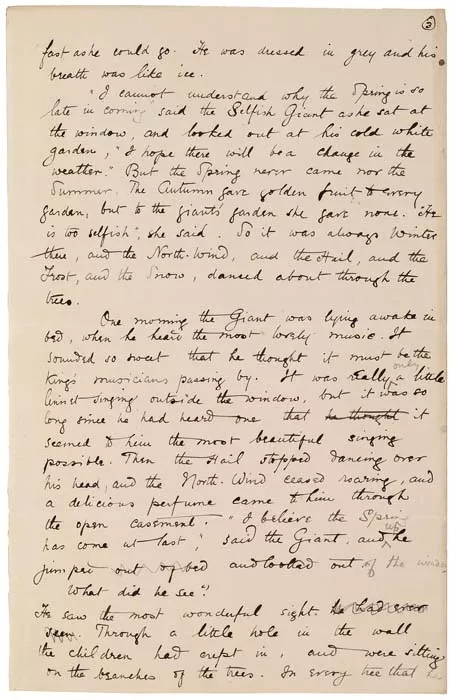 (3)
fast as he could go. He was dressed in grey and his
breath was like ice.
"I cannot understand why the Spring is so
late in coming" said the Selfish Giant as he sat at
the window, and looked out at his cold white
garden, "I hope there will be a change in the
weather." But the Spring never came nor the
Summer. The Autumn gave golden fruit to every
garden, but to the giant's garden she gave none. "He
is too selfish", she said. So it was always Winter
there, and the North-Wind, and the Hail, and the
Frost, and the Snow, danced about through the
trees.
One morning the Giant was lying awake in
bed, when he heard the most lovely music. It
sounded so sweet that he thought it must be the
King's musicians passing by. It was really only a little
linnet singing outside the window, but it was so
long since he had heard one that he thought it
seemed to him the most beautiful singing
possible. Then the Hail stopped dancing over
his head, and the North-Wind ceased roaring, and
a delicious perfume came to him through
the open casement. "I believe the Spring
has come at last", said the Giant, and he
jumped up out of bed and looked out of the window
What did he see?
He saw the most wonderful sight. he had ever
seen. Through a little hole in the wall
the children had crept in, and were sitting
on the branches of the trees. In every tree that he